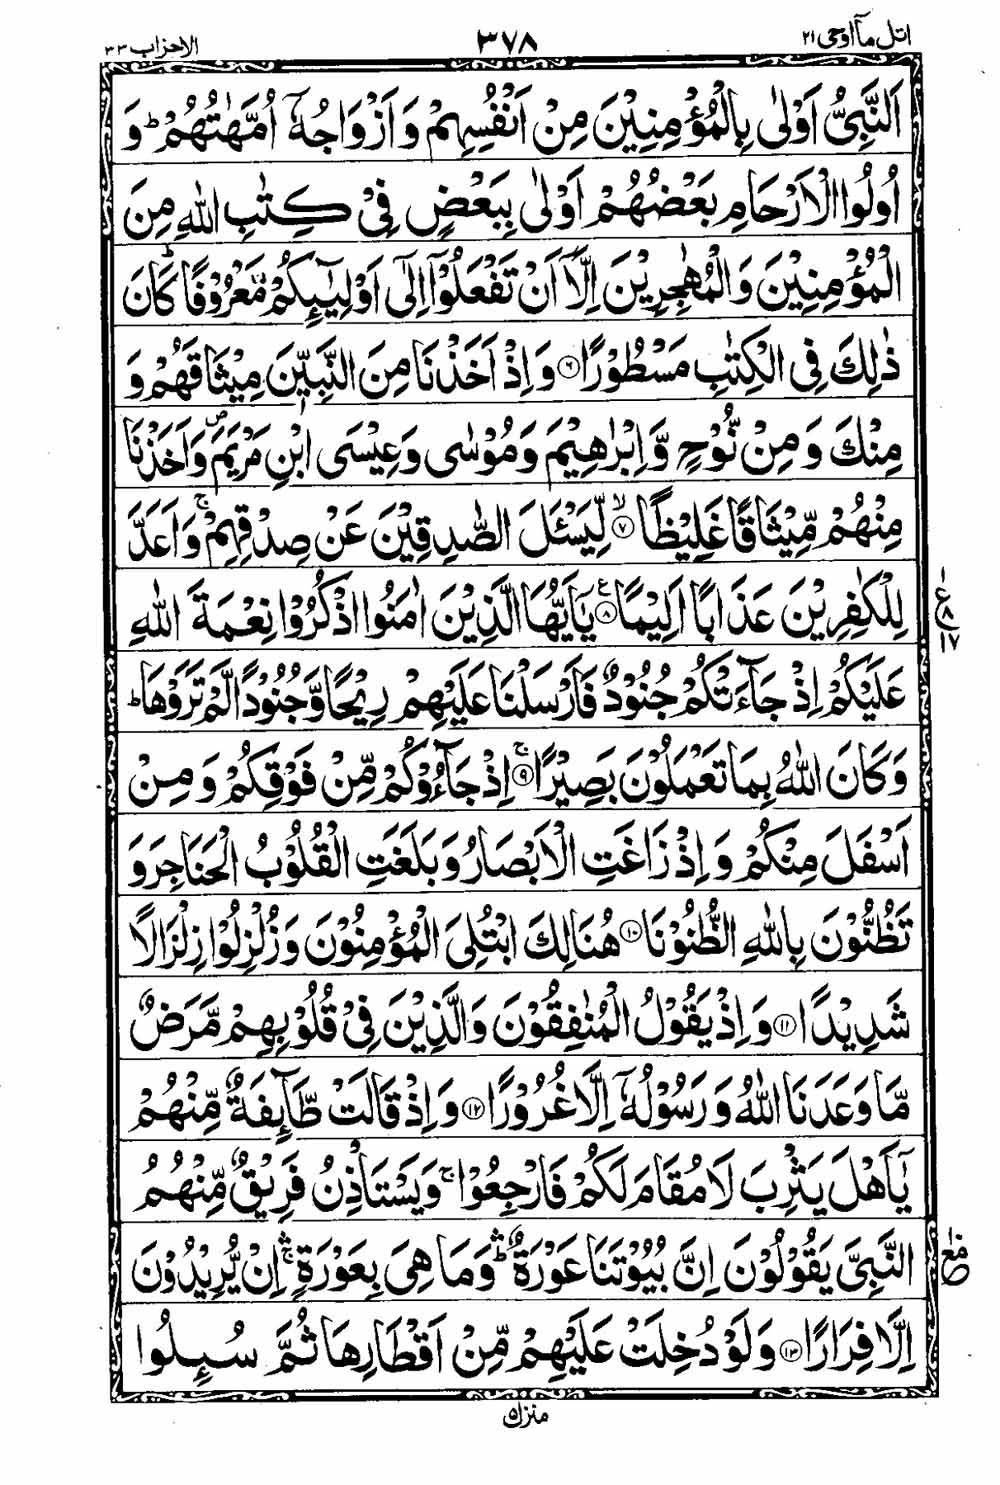 اتل مآ اوحی ۲۱
۳۷۸
الاحزاب ۳۳
اَلنَّبِىُّ اَوْلٰى بِالْمُؤْمِنِيْنَ مِنْ اَنْفُسِهِمْ وَاَزْوَاجُهٗۤ اُمَّهٰتُهُمْ ؕ وَ
اُولُوا الْاَرْحَامِ بَعْضُهُمْ اَوْلٰى بِبَعْضٍ فِىْ كِتٰبِ اللّٰهِ مِنَ
الْمُؤْمِنِيْنَ وَالْمُهٰجِرِيْنَ اِلَّاۤ اَنْ تَفْعَلُوْۤا اِلٰٓى اَوْلِيٰٓئِكُمْ مَّعْرُوْفًا ؕ كَانَ
ذٰلِكَ فِى الْكِتٰبِ مَسْطُوْرًا ۶ وَاِذْ اَخَذْنَا مِنَ النَّبِيّٖنَ مِيْثَاقَهُمْ وَ
مِنْكَ وَمِنْ نُّوْحٍ وَّاِبْرٰهِيْمَ وَمُوْسٰى وَعِيْسَى ابْنِ مَرْيَمَ ۪ وَاَخَذْنَا
مِنْهُمْ مِّيْثَاقًا غَلِيْظًا ۷ ۙ لِّيَسْـَٔلَ الصّٰدِقِيْنَ عَنْ صِدْقِهِمْ ۚ وَاَعَدَّ
لِلْكٰفِرِيْنَ عَذَابًا اَلِيْمًا ۸ ع يٰۤاَيُّهَا الَّذِيْنَ اٰمَنُوا اذْكُرُوْا نِعْمَةَ اللّٰهِ
ع ۸ ۱ ۱۷
عَلَيْكُمْ اِذْ جَآءَتْكُمْ جُنُوْدٌ فَاَرْسَلْنَا عَلَيْهِمْ رِيْحًا وَّجُنُوْدًا لَّمْ تَرَوْهَا ؕ
وَكَانَ اللّٰهُ بِمَا تَعْمَلُوْنَ بَصِيْرًا ۹ ۚ اِذْ جَآءُوْكُمْ مِّنْ فَوْقِكُمْ وَمِنْ
اَسْفَلَ مِنْكُمْ وَاِذْ زَاغَتِ الْاَبْصَارُ وَبَلَغَتِ الْقُلُوْبُ الْحَنَاجِرَ وَ
تَظُنُّوْنَ بِاللّٰهِ الظُّنُوْنَا ۱۰ هُنَالِكَ ابْتُلِىَ الْمُؤْمِنُوْنَ وَزُلْزِلُوْا زِلْزَالًا
شَدِيْدًا ۱۱ وَاِذْ يَقُوْلُ الْمُنٰفِقُوْنَ وَالَّذِيْنَ فِىْ قُلُوْبِهِمْ مَّرَضٌ
مَّا وَعَدَنَا اللّٰهُ وَرَسُوْلُهٗۤ اِلَّا غُرُوْرًا ۱۲ وَاِذْ قَالَتْ طَّآئِفَةٌ مِّنْهُمْ
يٰۤاَهْلَ يَثْرِبَ لَا مُقَامَ لَكُمْ فَارْجِعُوْا ۚ وَيَسْتَاْذِنُ فَرِيْقٌ مِّنْهُمُ
النَّبِىَّ يَقُوْلُوْنَ اِنَّ بُيُوْتَنَا عَوْرَةٌ ؕۛ وَمَا هِىَ بِعَوْرَةٍ ۛۚ اِنْ يُّرِيْدُوْنَ
اِلَّا فِرَارًا ۱۳ وَلَوْ دُخِلَتْ عَلَيْهِمْ مِّنْ اَقْطَارِهَا ثُمَّ سُٮِٕلُوا
منزل ۵